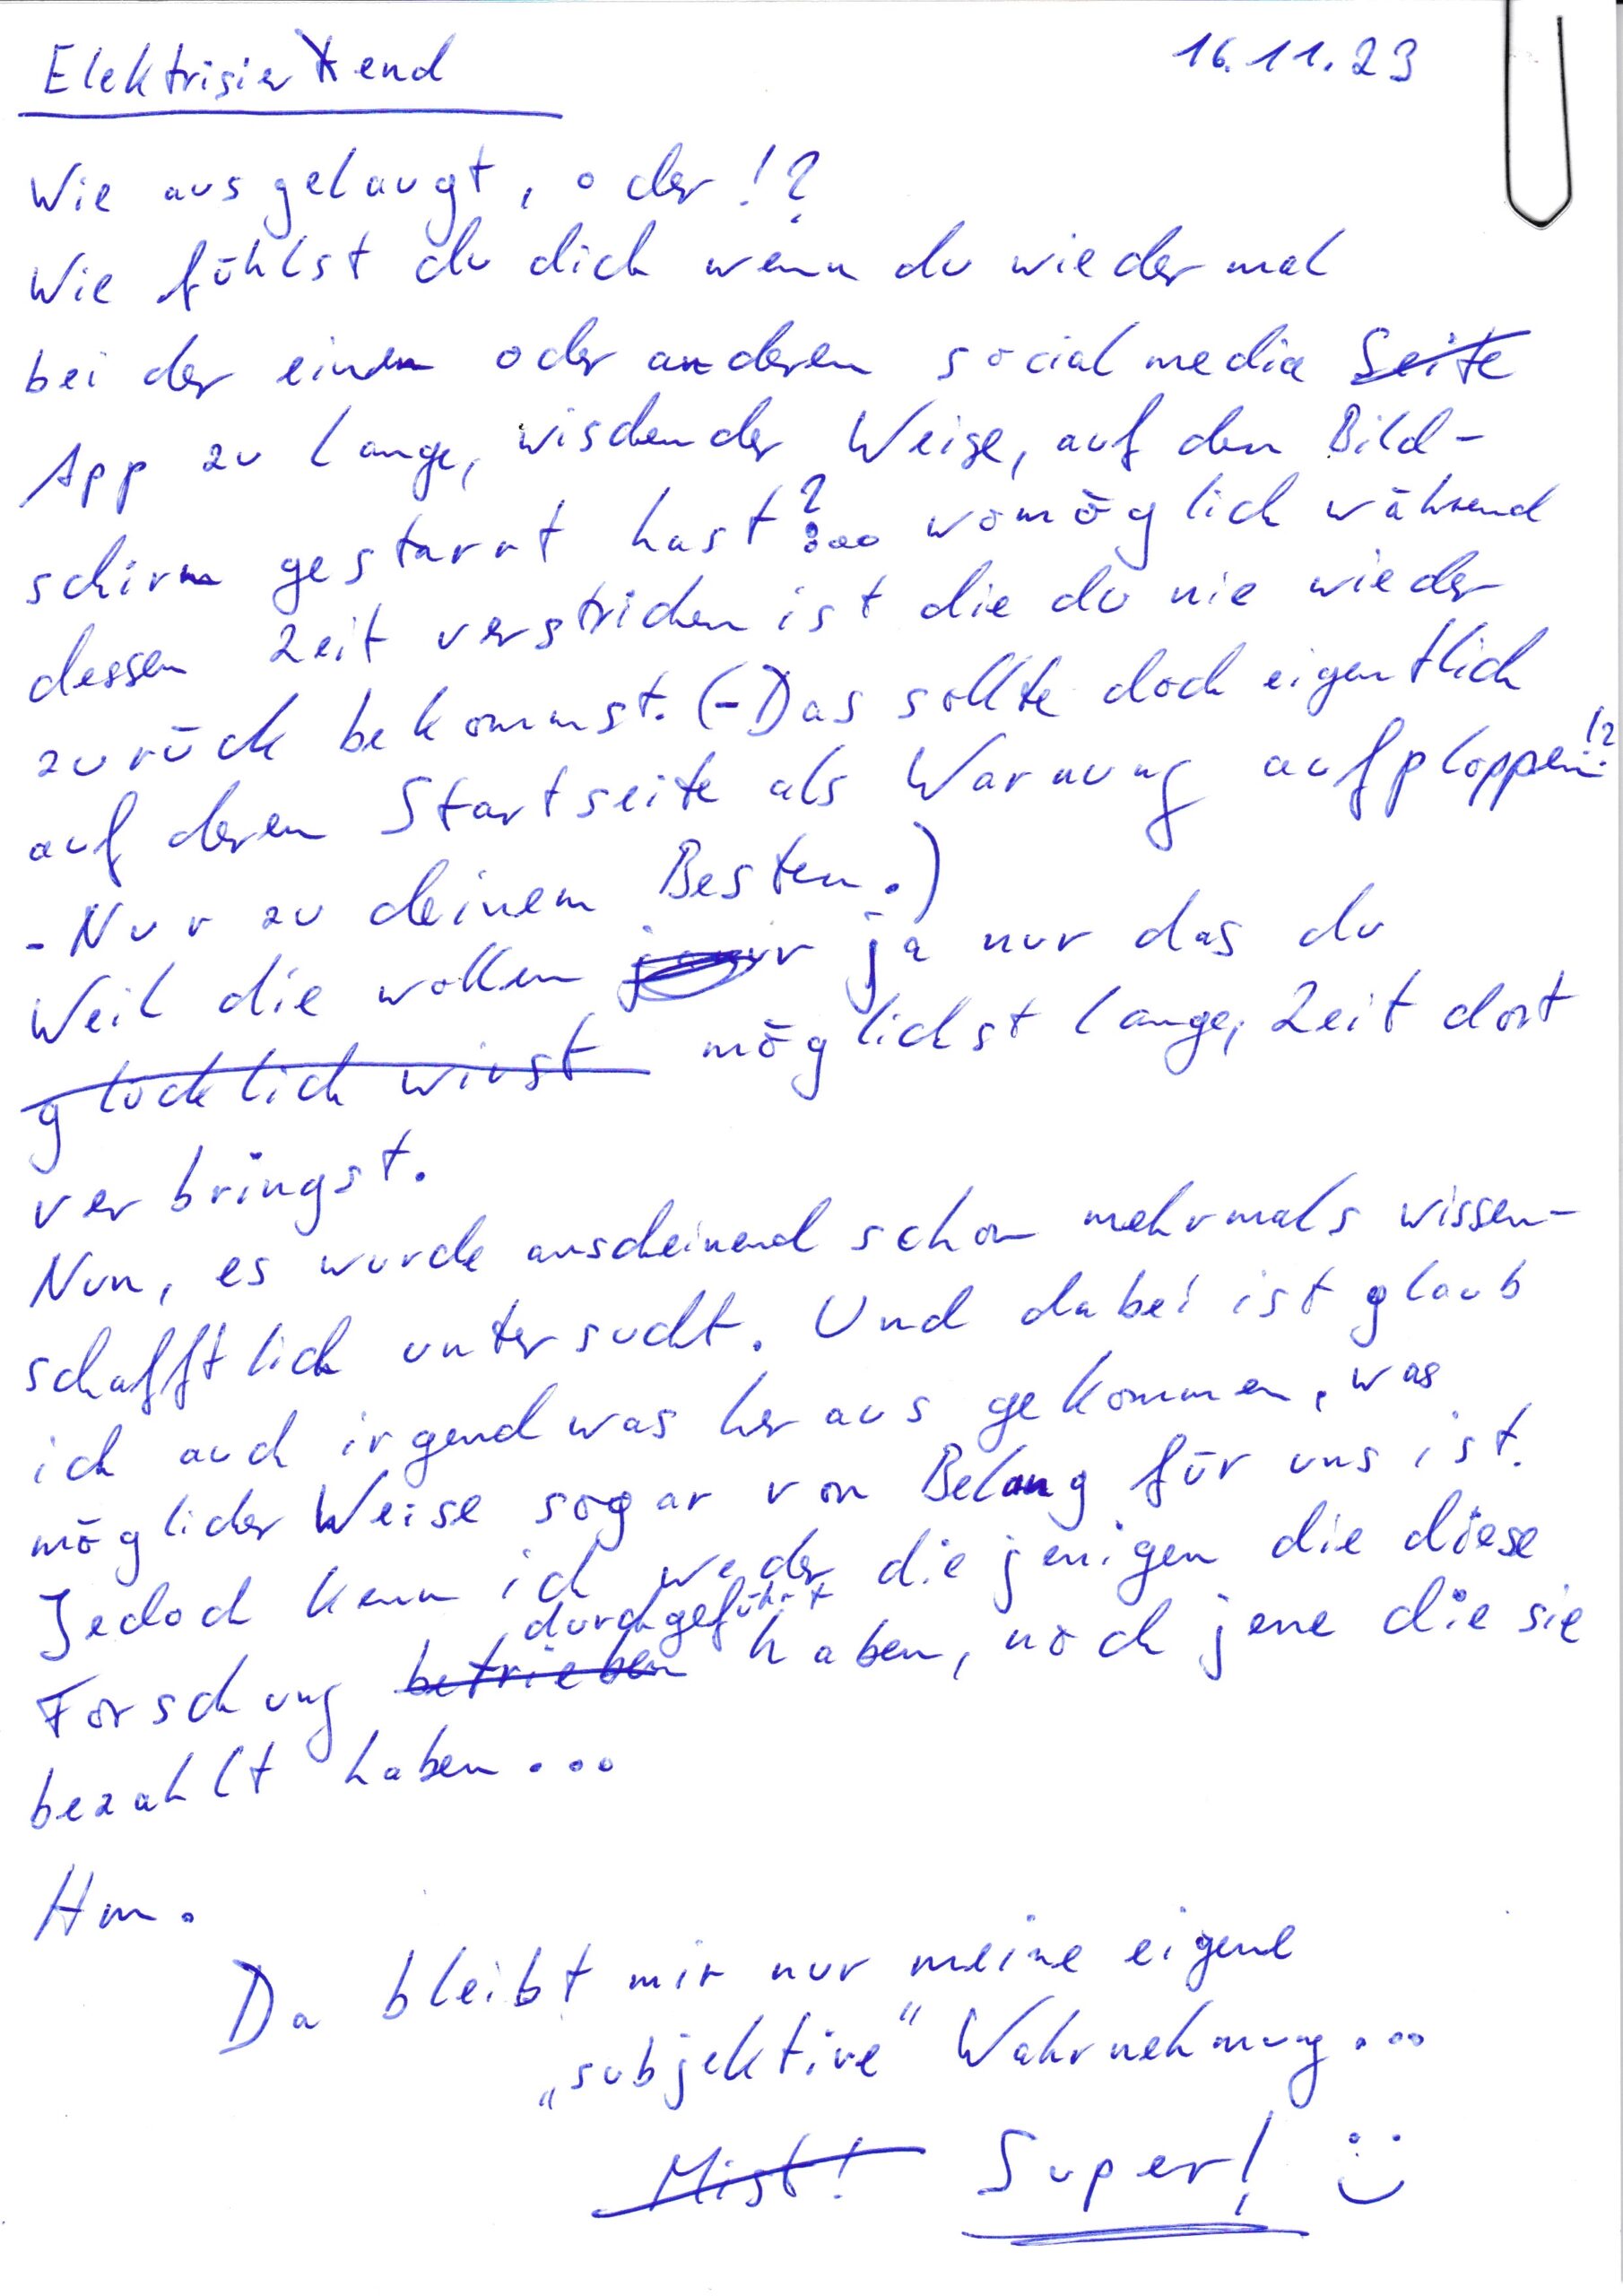 Elektrisierend 16.11.23
Wie ausgelaugt, oder!?
Wie fühlst du dich wenn du wieder mal
bei der einen oder anderen social media Seite
App zu lange, wischender Weise, auf den Bild-
schirm gestarrt hast?... womöglich während
dessen Zeit verstrichen ist die du nie wieder
zurück bekommst. (-Das sollte doch eigentlich
auf deren Startseite als Warnung aufploppen!?
- Nur zu deinem Besten.)
Weil die wollen ja nur das du
glücklich wirst möglichst lange, Zeit dort
verbringst.
Nun, es wurde anscheinend schon mehrmals wissen-
schafftlich untersucht. Und dabei ist glaub
ich auch irgend was heraus gekommen, was
möglicher Weise sogar von Belang für uns ist.
Jedoch kenn ich weder die jenigen die diese
durchgeführt
Forschung betrieben haben, noch jene die sie
bezahlt haben...
Hm.
Da bleibt mir nur meine eigene
„subjektive“ Wahrnehmung...
Mist! Super! :)